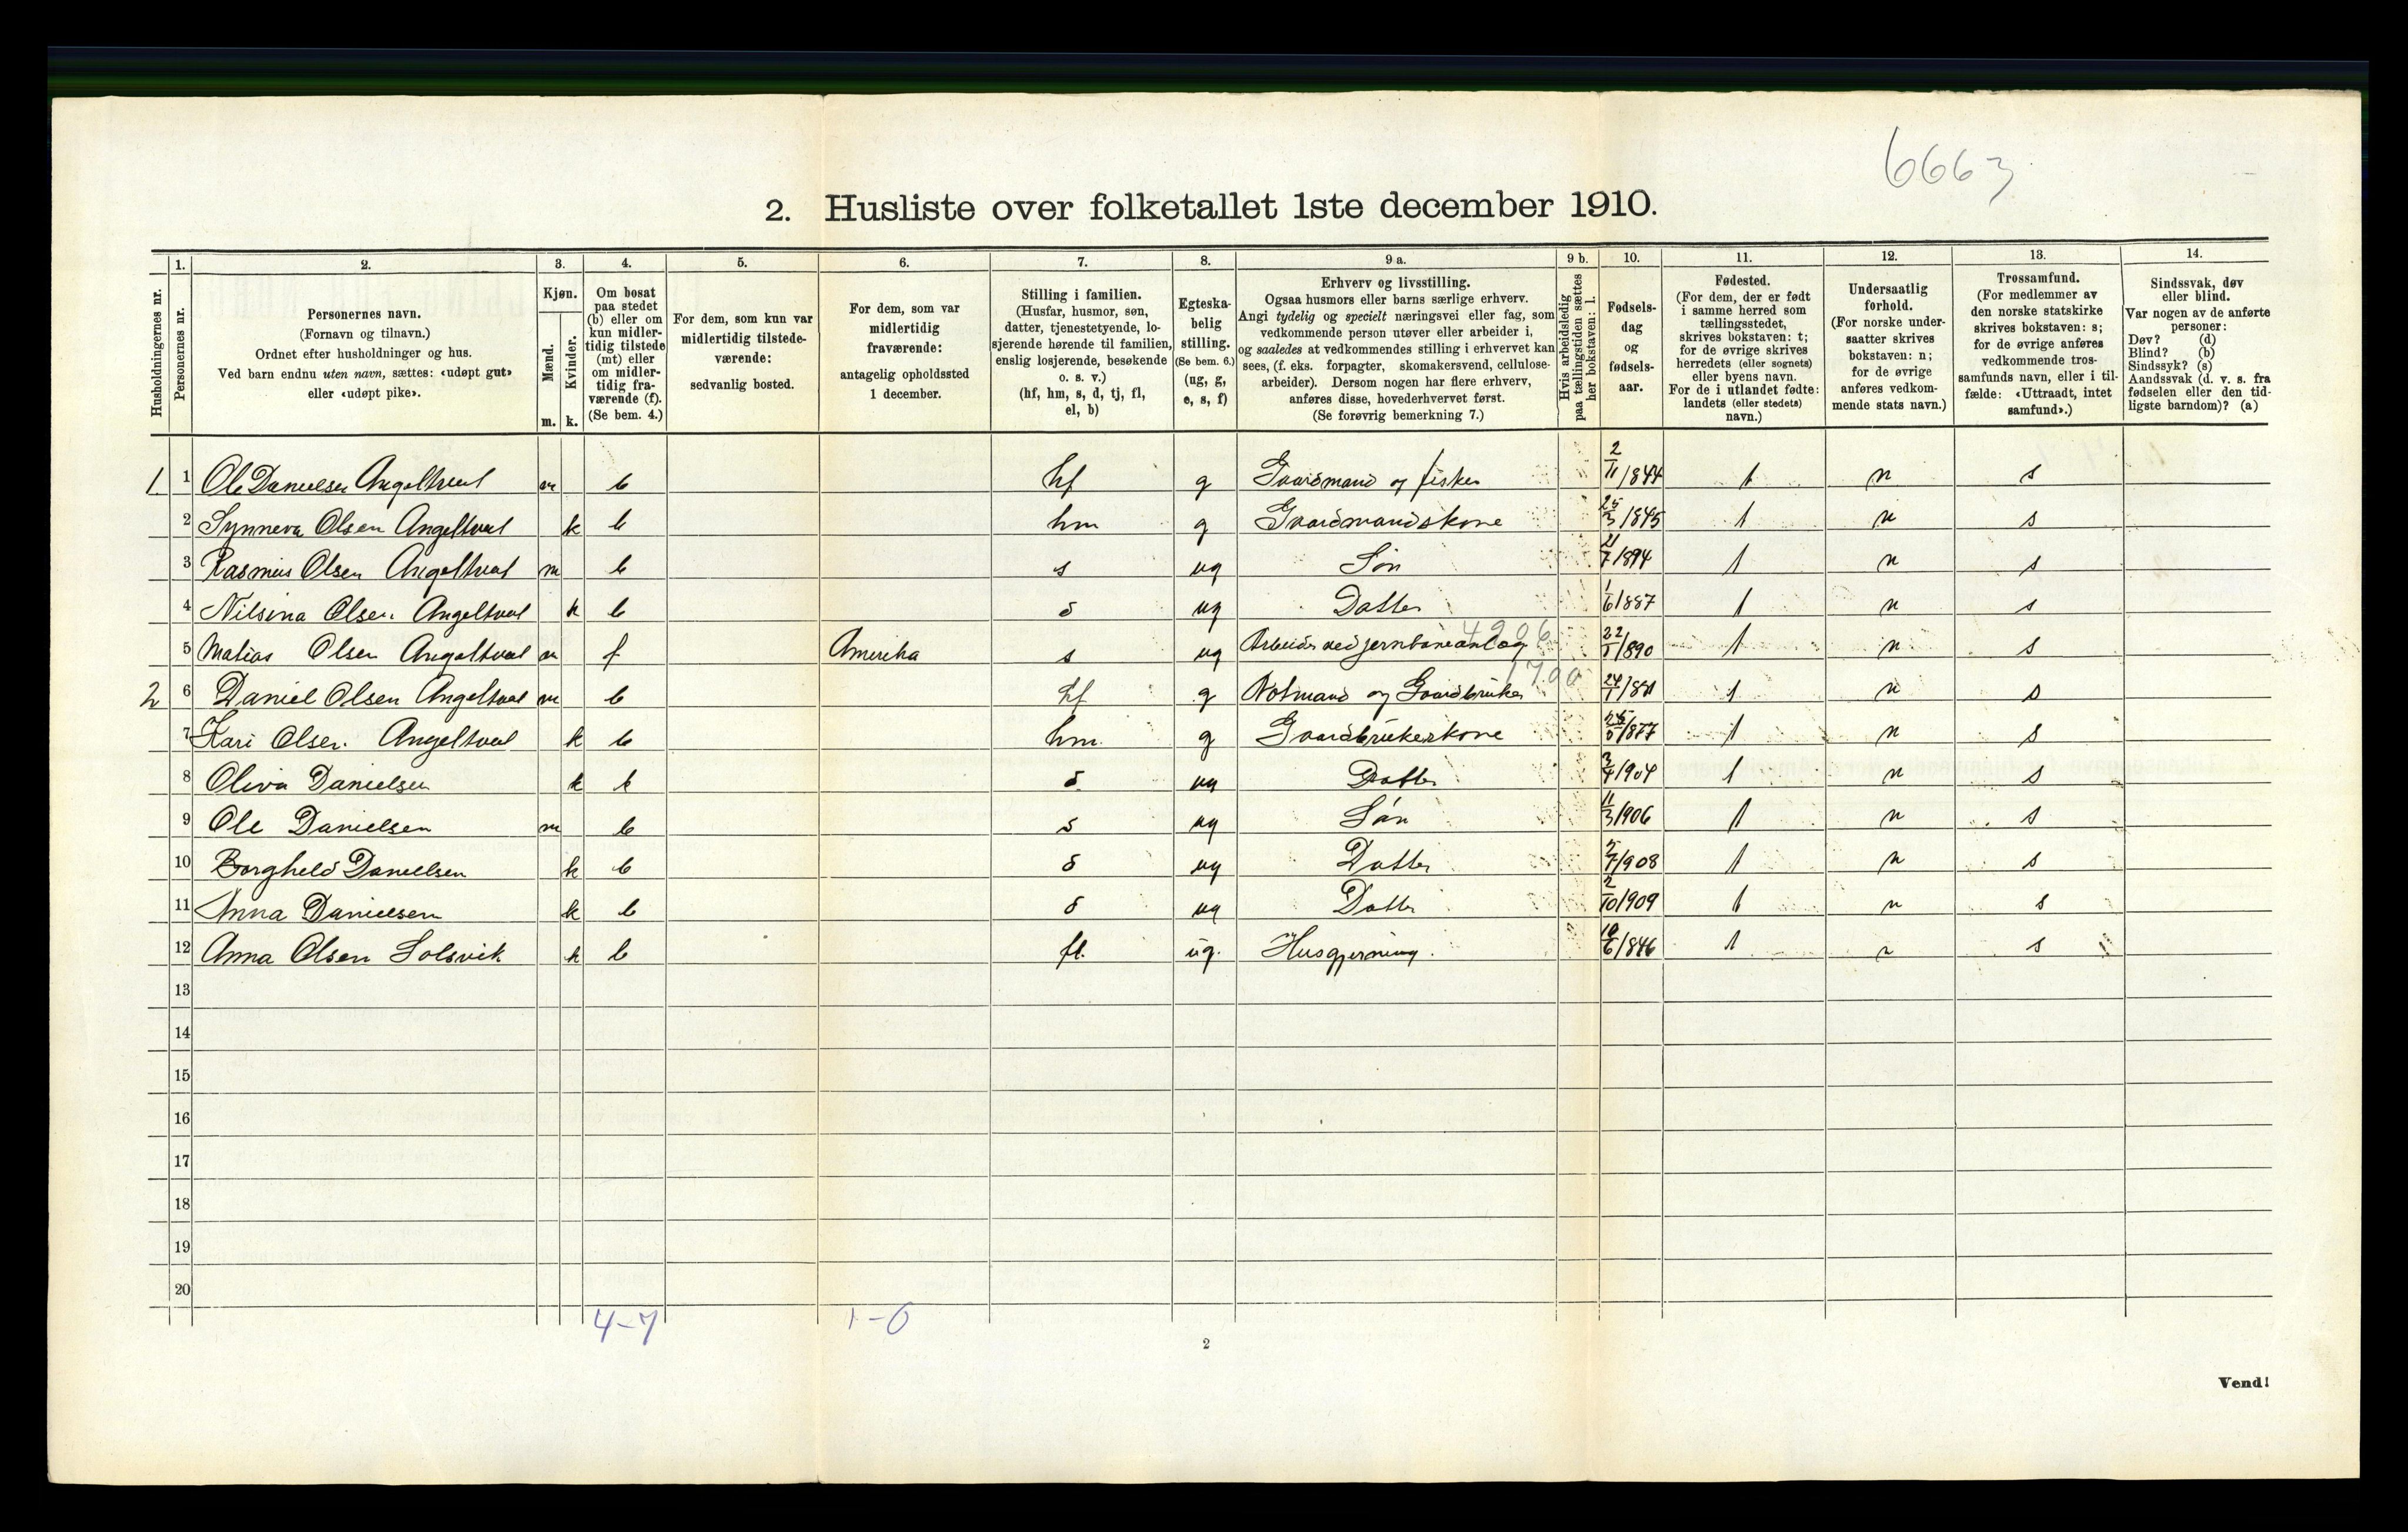 6663
2. Husliste over folketallet 1ste december 1910.
Husholdningernes nr.
1. Personernes nr.
2. Personernes navn.
(Fornavn og tilnavn.)
Ordnet efter husholdninger og hus.
Ved barn endnu uten navn, sættes: «udøpt gut»
eller «udøpt pike».
3. Kjøn.
Mænd. m.
Kvinder. k.
4. Om bosat
paa stedet
(b) eller om
kun midler-
tidig tilstede
(mt) eller
om midler-
tidig fra-
værende (f).
(Se bem. 4.)
5. For dem, som kun var
midlertidig tilstede-
værende:
sedvanlig bosted.
6. For dem, som var
midlertidig
fraværende:
antagelig opholdssted
1 december.
7. Stilling i familien.
(Husfar, husmor, søn,
datter, tjenestetyende, lo-
sjerende hørende til familien,
enslig losjerende, besøkende
o. s. v.)
(hf, hm, s, d, tj, fl,
el, b)
8. Egteska-
belig
stilling.
(Se bem. 6.)
(ug, g,
e, s, f)
9 a. Erhverv og livsstilling.
Ogsaa husmors eller barns særlige erhverv.
Angi tydelig og specielt næringsvei eller fag, som
vedkommende person utøver eller arbeider i,
og saaledes at vedkommendes stilling i erhvervet kan
sees, (f. eks. forpagter, skomakersvend, cellulose-
arbeider). Dersom nogen har flere erhverv,
anføres disse, hovederhvervet først.
(Se forøvrig bemerkning 7.)
9 b. Hvis arbeidsledig
paa tællingstiden sættes
her bokstaven: l.
10. Fødsels-
dag
og
fødsels-
aar.
11. Fødested.
(For dem, der er født
i samme herred som
tællingsstedet,
skrives bokstaven: t;
for de øvrige skrives
herredets (eller sognets)
eller byens navn.
For de i utlandet fødte:
landets (eller stedets)
navn.)
12. Undersaatlig
forhold.
(For norske under-
saatter skrives
bokstaven: n;
for de øvrige
anføres vedkom-
mende stats navn.)
13. Trossamfund.
(For medlemmer av
den norske statskirke
skrives bokstaven: s;
for de øvrige anføres
vedkommende tros-
samfunds navn, eller i til-
fælde: «Uttraadt, intet
samfund».)
14. Sindssvak, døv
eller blind.
Var nogen av de anførte
personer:
Døv? (d)
Blind? (b)
Sindssyk? (s)
Aandssvak (d. v. s. fra
fødselen eller den tid-
ligste barndom)? (a)
1. 1 Ole Danielsen Angeltveit m b hf g Gaardmand og fisker 2/11 1844 t n s
2 Synneva Olsen Angeltveit k b hm g Gaardmandskone 25/3 1845 t n s
3 Rasmus Olsen Angeltveit m b s ug Søn 21/7 1894 t n s
4 Nilsina Olsen Angeltveit k b d ug Datter 1/6 1887 t n s
4906
5 Matias Olsen Angeltveit m f Amerika s ug Arbeider ved jernbaneanlæg 22/1 1890 t n s
1700
2 6 Daniel Olsen Angeltveit m b hf g Notmand og Gaardbruker 24/1 1881 t n s
7 Kari Olsen Angeltveit k b hm g Gaardbrukerkone /5 1877 t n s
8 Oliva Danielsen k b d ug Datter 3/4 1904 t n s
9 Ole Danielsen m b s ug Søn 11/3 1906 t n s
10 Borgheld Danielsen k b d ug Datter /7 1908 t n s
11 Anna Danielsen k b d ug Datter 2/10 1909 t n s
12 Anna Olsen Solsvik k b fl. ug. Husgjerning. /6 1846 t n s
13
14
15
16
17
18
19
20
4-7 1-0
2
Vend!